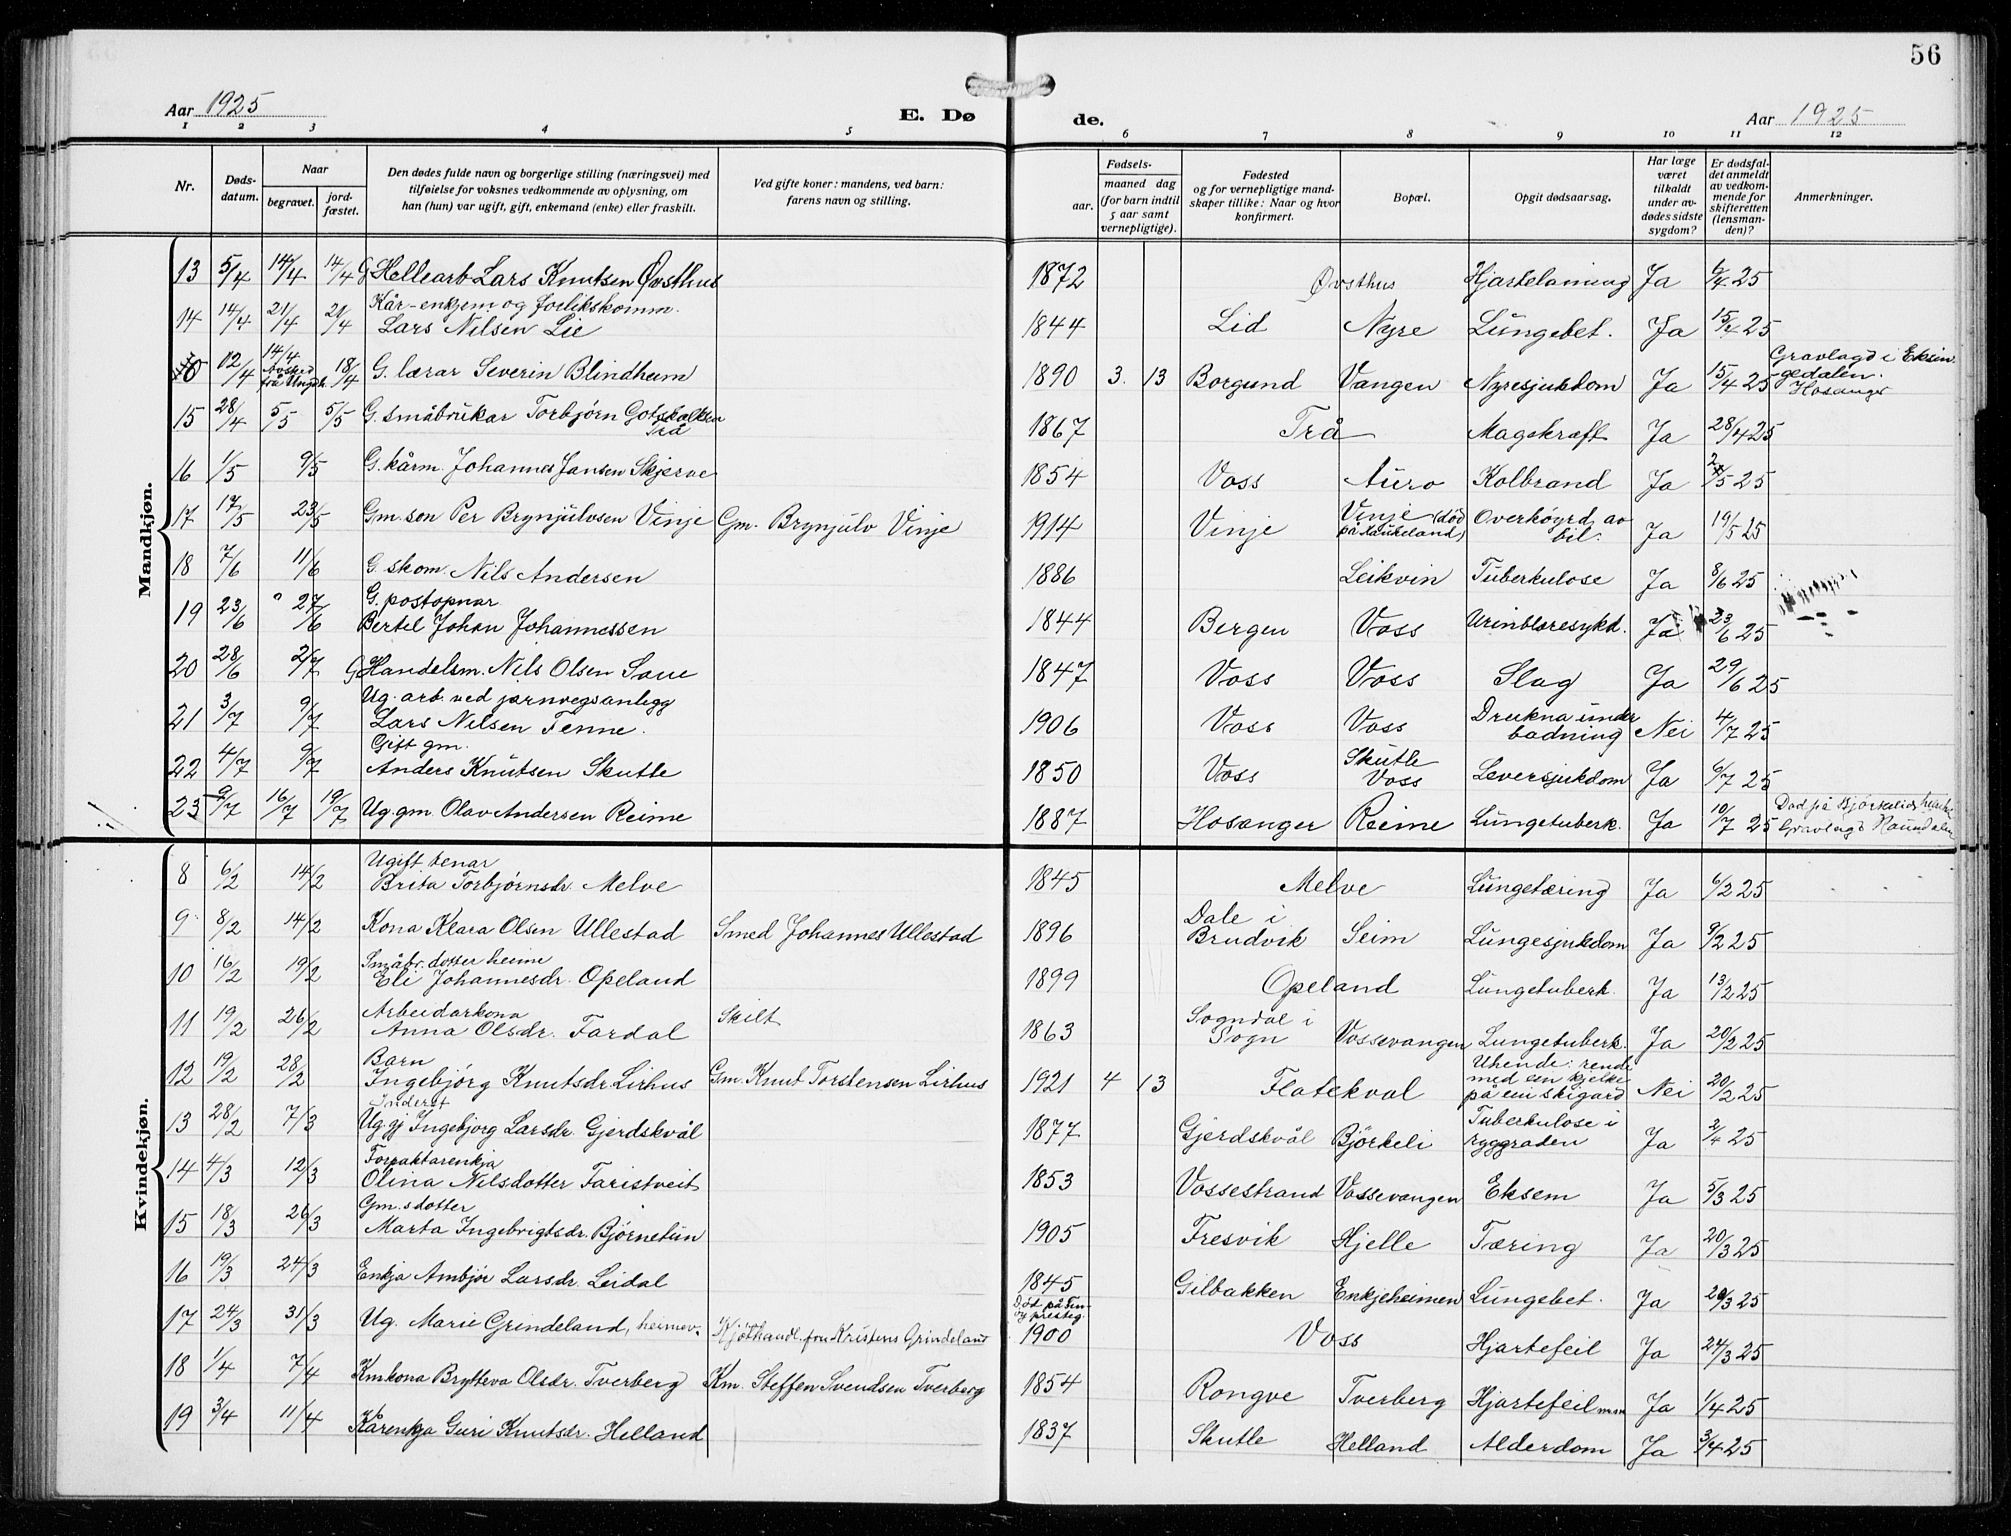 56
Aar 1925
E. Dø de.
Aar 1925
1 2 3 4 5 6 7 8 9 10 11 12
Nr.
Døds-datum.
Naar
begravet.
jord-fæstet.
Den dødes fulde navn og borgerlige stilling (næringsvei) med
tilføielse for voksnes vedkommende av oplysning, om
han (hun) var ugift, gift, enkemand (enke) eller fraskilt.
Ved gifte koner: mandens, ved barn:
farens navn og stilling.
Fødsels-
aar.
maaned dag
(for barn indtil
5 aar samt
vernepligtige).
Fødested
og for vernepligtige mand-
skaper tillike: Naar og hvor
konfirmert.
Bopæl.
Opgit dødsaarsag.
Har læge
været
tilkaldt
under av-
dødes sidste
sygdom?
Er dødsfal-
det anmeldt
av vedkom-
mende for
skifteretten
(lensman-
den)?
Anmerkninger.
Mandkjøn.
13 5/4 14/4 14/4 G Hellearb Lars Knutsen Øvsthus 1872 Øvsthus Hjartelaming Ja 6/4 25
Kår-enkjem og forlikskomm.
14 14/4 21/4 21/4 Lars Nilsen Lie 1844 Lid Nyre Lungebet. Ja 15/4 25
12/4 14/4 18/4 G. lærar Severin Blindheim 1890 3. 13 Borgund Vangen Nyresjukdom Ja 15/4 25 Gravlagd i Eksin
gedalen.
Hosanger
15 28/4 5/5 5/5 G. småbrukar Torbjørn Gotskalksen
Trå 1867 Trå Magekræft Ja 28/4 25
16 1/5 9/5 G. kårm. Johannes Jansen Skjerve 1854 Voss Auro Kolbrand Ja 2/5 25
17 17/5 23/5 Gm. son Per Brynjulvsen Vinje Gm. Brynjulv Vinje 1914 Vinje Vinje (död
på Haukeland) Overkøyrd av
bil. Ja 19/5 25
18 7/6 11/6 G. skom. Nils Andersen 1886 Leikvin Tuberkulose Ja 8/6 25
G. postopnar
19 23/6 27/6 Bertel Johan Johannessen 1844 Bergen Voss Urinblæresykd. Ja 23/6 25
20 28/6 2/7 G Handelsm. Nils Olsen Saue 1847 Voss Voss Slag Ja 29/6 25
Ug. arb. ved jarnvegsanlegg
21 3/7 9/7 Lars Nilsen Tenne. 1906 Voss Voss Drukna under
badning Nei 4/7 25
Gift gm.
22 4/7 9/7 Anders Knutsen Skutle 1850 Voss Skutle
Voss Leversjukdom Ja 6/7 25
23 9/7 16/7 19/7 Ug. gm. Olav Andersen Reime 1887 Hosanger Reime Lungetuberk. Ja 10/7 25 Dod på Bjørkelid
Gravlagd
Kvindekjøn.
Ugift tenar
8 6/2 14/2 Brita Torbjørnsdr. Melve 1845 Melve Lungetæring Ja 6/2 25
9 8/2 14/2 Kona Klara Olsen Ullestad Smed Johannes Ullestad 1896 Dale i
Brudvik Seim Lungesjukdom Ja 9/2 25
Småbr. dotter heime
10 16/2 19/2 Eli Johannesdr. Opeland 1899 Opeland Lungetuberk. Ja 13/2 25
Arbeidarkona
11 19/2 26/2 Anna Olsdr. Fardal Skilt 1863 Sogndal i
Sogn Vossevangen Lungetuberk. Ja 20/2 25
Barn
12 19/2 28/2 Ingebjörg Knutsdr Lirhus Gm. Knut Torstensen Lirhus 1921 4 13 Flatekval Uhende: rende
med ein kjelke
på ein skigard Nei 20/2 25
Inderst
13 28/2 7/3 Ug. gj Ingebjorg Larsdr. Gjerdskvål 1877 Gjerdskvål Björkeli Tuberkulose i
ryggraden Ja 2/4 25
Forpaktarenkja
14 4/3 12/3 Olina Nilsdotter Faristveit 1853 Vossestrand Vossevangen Eksem Ja 5/3 25
Gm.s dotter
15 18/3 26/3 Marta Ingebrigtsdr. Björnetun 1905 Fresvik Hjelle Tæring Ja 20/3 25
16 19/3 24/3 Enkja Ambjør Larsdr. Leidal 1845 Gilbakken Enkjeheimen Lungebet. Ja 20/3 25
17 24/3 31/3 Ug. Marie Grindeland, heimev. Kjøthandl. fru Kristens Grindeland Död på
presteg.
1900 Voss Hjartefeil Ja 24/3 25
18 1/4 7/4 Kmkona Brytteva Olsdr. Tverberg Km. Steffen Svendsen Tverberg 1854 Rongve Tverberg Hjartefeil m.m Ja 1/4 25
19 3/4 11/4 Kårenkja Guri Knutsdr. Helland 1837 Skutle Helland Alderdom Ja 3/4 25